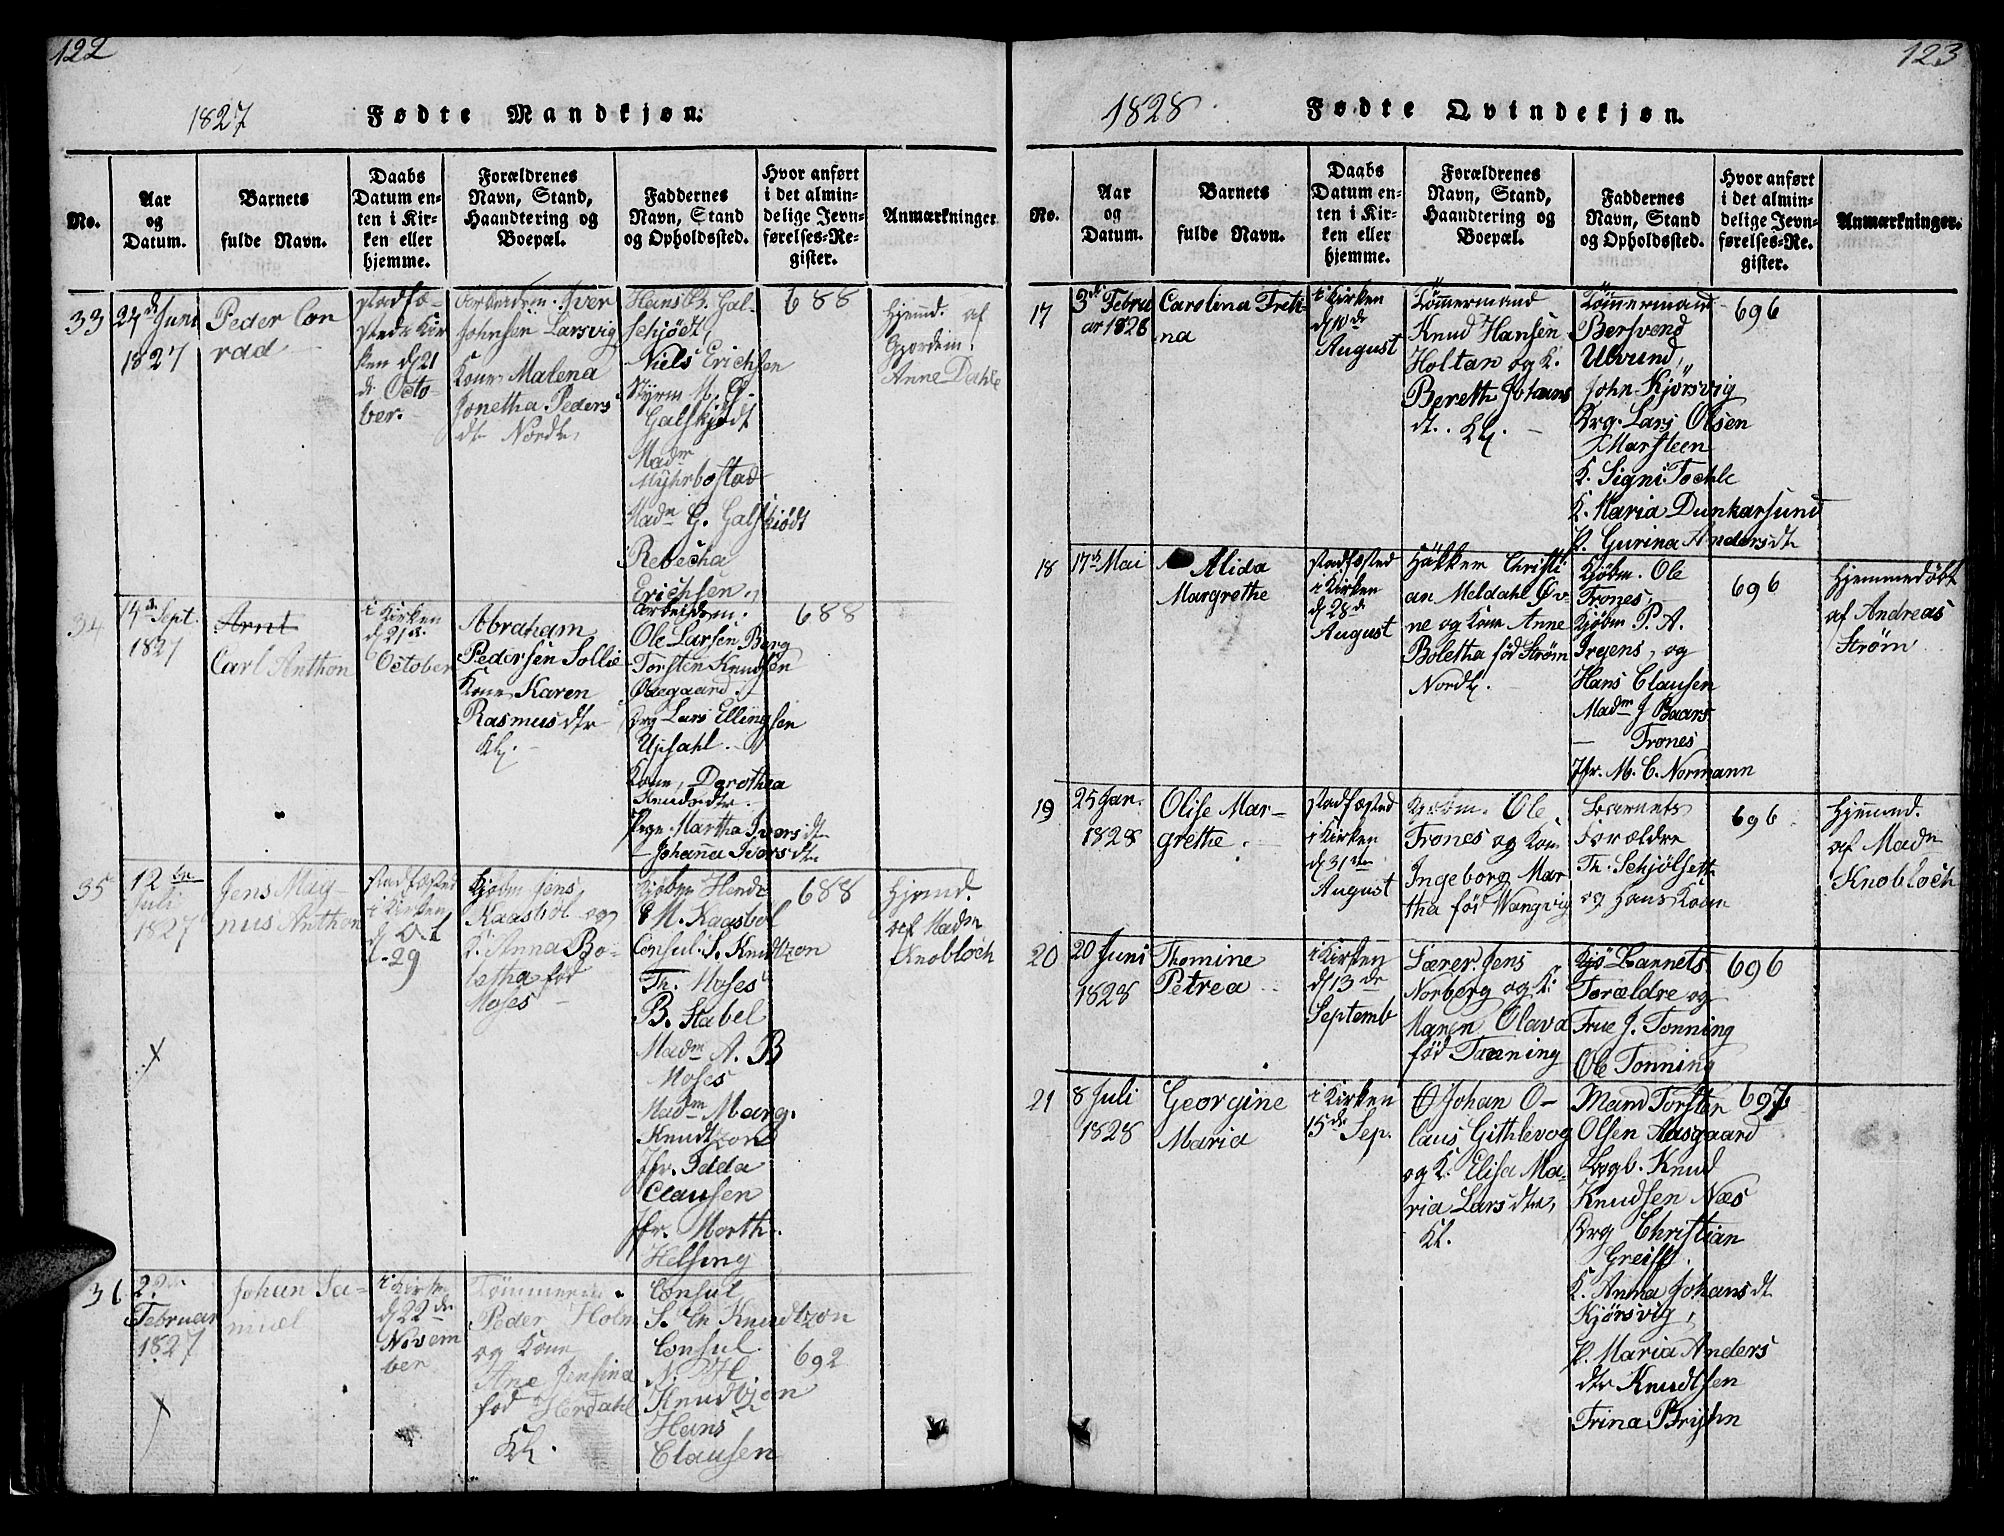 122
1827
Fødte Mandkjøn.
No.
Aar
og
Datum.
Barnets
fulde Navn.
Daabs
Datum en-
ten i Kir-
ken eller
hjemme.
Forældrenes
Navn, Stand,
Haandtering og
Boepæl.
Faddernes
Navn, Stand
og Opholdssted.
Hvor anført
i det almin-
delige Jevn-
førelses-Re-
gister.
Anmærkninger
33
24de Juni
1827
Peder Con
rad
stadfæ-
stede Kir
ken d. 21
de Octo-
ber.
Arbeidsm. Iver
Johnsen Larsvig
Kone Malena
Jonetha Peders
dtr Nordl.
Hans Ch. Gal-
schjødt,
Niels Erichsen
Styrm M. G.
Galskjødt
Madm
Myhrbostad
Madm G. Galskiödt
Rebecha
Erichsen
688
Hjemd. af
Gjordem.
Anne Dahle
34
14de Sept.
1827
Arnt
Carl Anthon
i Kirken
d 21de
October
Abraham
Pedersen Sollie
Kone Karen
Rasmusdtr
Kl.
Arbeidsm.
Ole Larsen Berg
Torsten Knudsen
Odegaard
Drg Lars Ellingsen
Upsahl.
Kone, Dorothea
Knudsdtr.
Pige Martha Iversdtr
- Johanna Iversdtr
688
35
12te
Juli
1827
Jens Mag-
nus Anthon
stadfæsted
i Kirken
d. Oct
d. 29
Kjøbm Jens
Kaasbøl og
K. Anna Bo-
letha før
Moses
Kjøbm Hendr
M. Kaasbøl
Consul S. Knudtzon
Th. Moses
B. Stabel
Madm A. B
Moses
Madm Marg.
Knudtzon
Jfr. Edda
Clausen
Jfr. Morth.
Helsing
688
Hjemd.
af Madm
Knobloch
36
22
Februar
1827
Johan Sa-
muel
i Kirken
d 22de
Novem
ber
Tömmerm.
Peder Holm
og Kone
Ane Jensina
fød Herdahl
Kl.
Consul
S. Ch Knudtzon
Consul
N. H
Knudtzon
Hans
Clausen
692
123
1828
Fødte Qvindekjøn.
No.
Aar
og
Datum.
Barnets
fulde Navn.
Daabs
Datum en-
ten i Kir-
ken eller
hjemme.
Forældrenes
Navn, Stand,
Haandtering og
Boepæl.
Faddernes
Navn, Stand
og Opholdssted.
Hvor anført
i det almin-
delige Jevn-
førelses-Re-
gister.
Anmærkninger.
17
3de Febru
ar 1828
Carolina Freti-
na
i Kirken
d 10de
August
Tömmermand
Knud Hansen
Holtan og K.
Bereth Johans
dt. Kl.
Tömmermand
Bersvend
Ulvund,
John Kjörsvig
Drg. Lars Olsen
Marsteen
K. Signi Tochle
K. Maria Dunkarsund
P. Gurina Andersdtr
696
18
17de Mai
Alida
Margrethe
stadfæsted
i Kirken
d 28de
August
Häkker Christi
an Meldahl Øv-
ne og Kone Anne
Boletha fød Strøm
Nordl.
Kjöbm. Ole
Trones,
Kjöbm P. A.
Irgens, og
Hans Clausen
Madm J Baars
— Trones
Jfr. M. C. Normann
696
Hjemmedöbt
af Andreas
Strøm
19
25 Jan.
1828
Olise Mar-
grethe
stadfæsted
i Kirken
d 31te
August
Kjøbm. Ole
Trones og Kone
Ingeborg Mar
tha fød Wangvig
Barnets
Forældre
Th. Schjølsett
og Hans Kone
696
Hjemmd.
af Madm
Knobloch
20
20 Juni
1828
Thomine
Petrea
i Kirken
d 13de
Septemb
Lærer Jens
Norberg og K.
Maren Olava
fød Tønning
Barnets
Forældre og
Frue J. Tonning
Ole Tonning
696
21
8 Juli
1828
Georgine
Maria
i Kirken
15de Sep.
Johan O-
laus Githlevog
og K. Elisa Ma-
ria Larsdtr,
Kl.
Mand Torsten
Olsen Aasgaard
Bogb. Knud
Knudsen Næs
Drg Christian
Greiff
K. Anna Johansdt
Kjörsvig,
P. Maria Anders
dtr Knudtsen
Trina Brishn
697